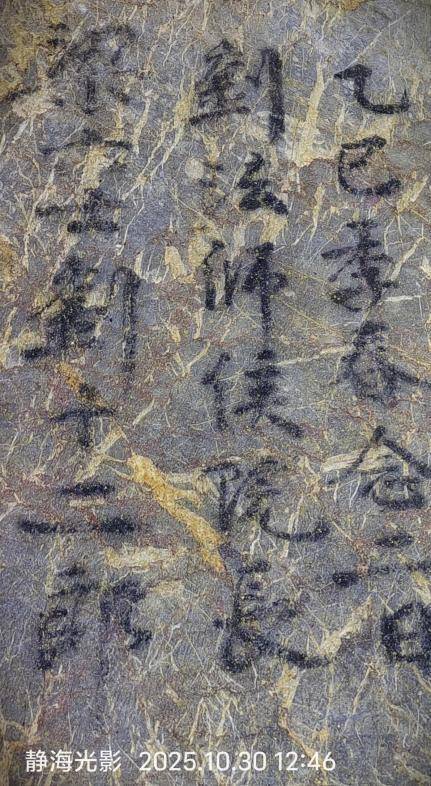 乙巳季春念二日
劉法師侯院長
梁 劉十二郎
静海光影 2025.10.30 12:46